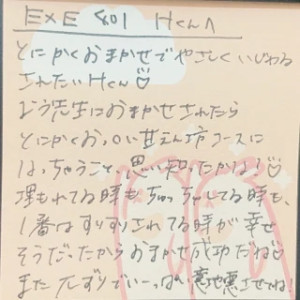 EXE 401 Hくんへ
とにかくおまかせでやさしくいじわる
されたいHくん♡
なう先生におまかせされたら
とにかくおっ○い甘えん坊コースに
なっちゃうこと、思い知ったかな!♡
埋もれてる時も、ちゅっちゅしてる時も、
1番はすりすりされてる時が幸せ
そうだったからおまかせ成功だね♡
またパズりでいーっぱい意地悪させてね!